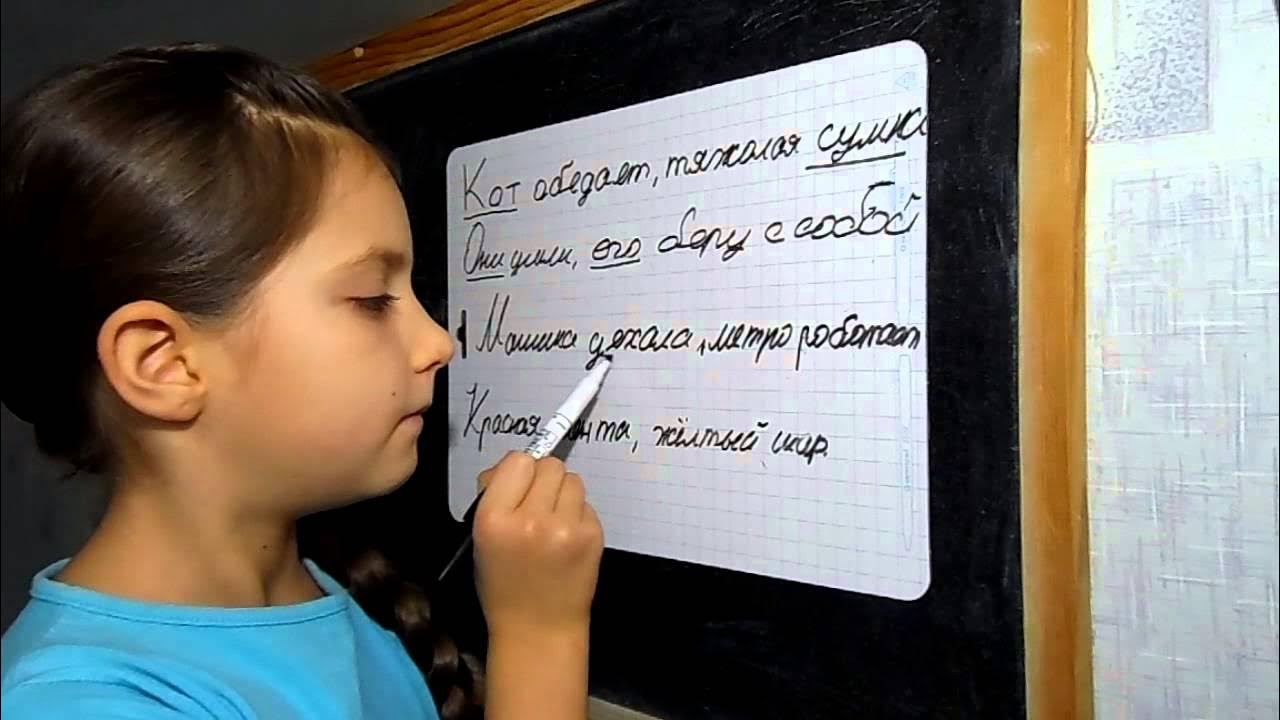 Кот абедает, тяжолая сумка
Они ушли, его беру с собой
Машина уяхала, мятро роботает
Красная жёлтый шар.